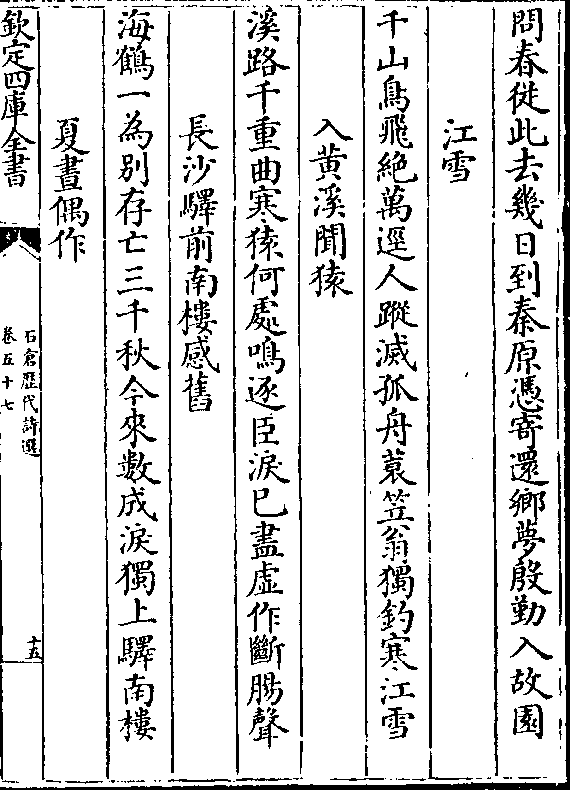 問春從此去幾日到秦原憑寄還鄉夢殷勤入故園
江雪
千山鳥飛絶萬逕人蹤滅孤舟蓑笠翁獨釣寒江雪
入黄溪聞猿
溪路千重曲寒猿何處鳴逐臣淚已盡虚作斷腸聲
長沙驛前南樓感舊
海鶴一為别存亡三千秋今來數成淚獨上驛南樓
夏晝偶作
欽定四庫全書
石倉歷代詩選
卷五十七
十五